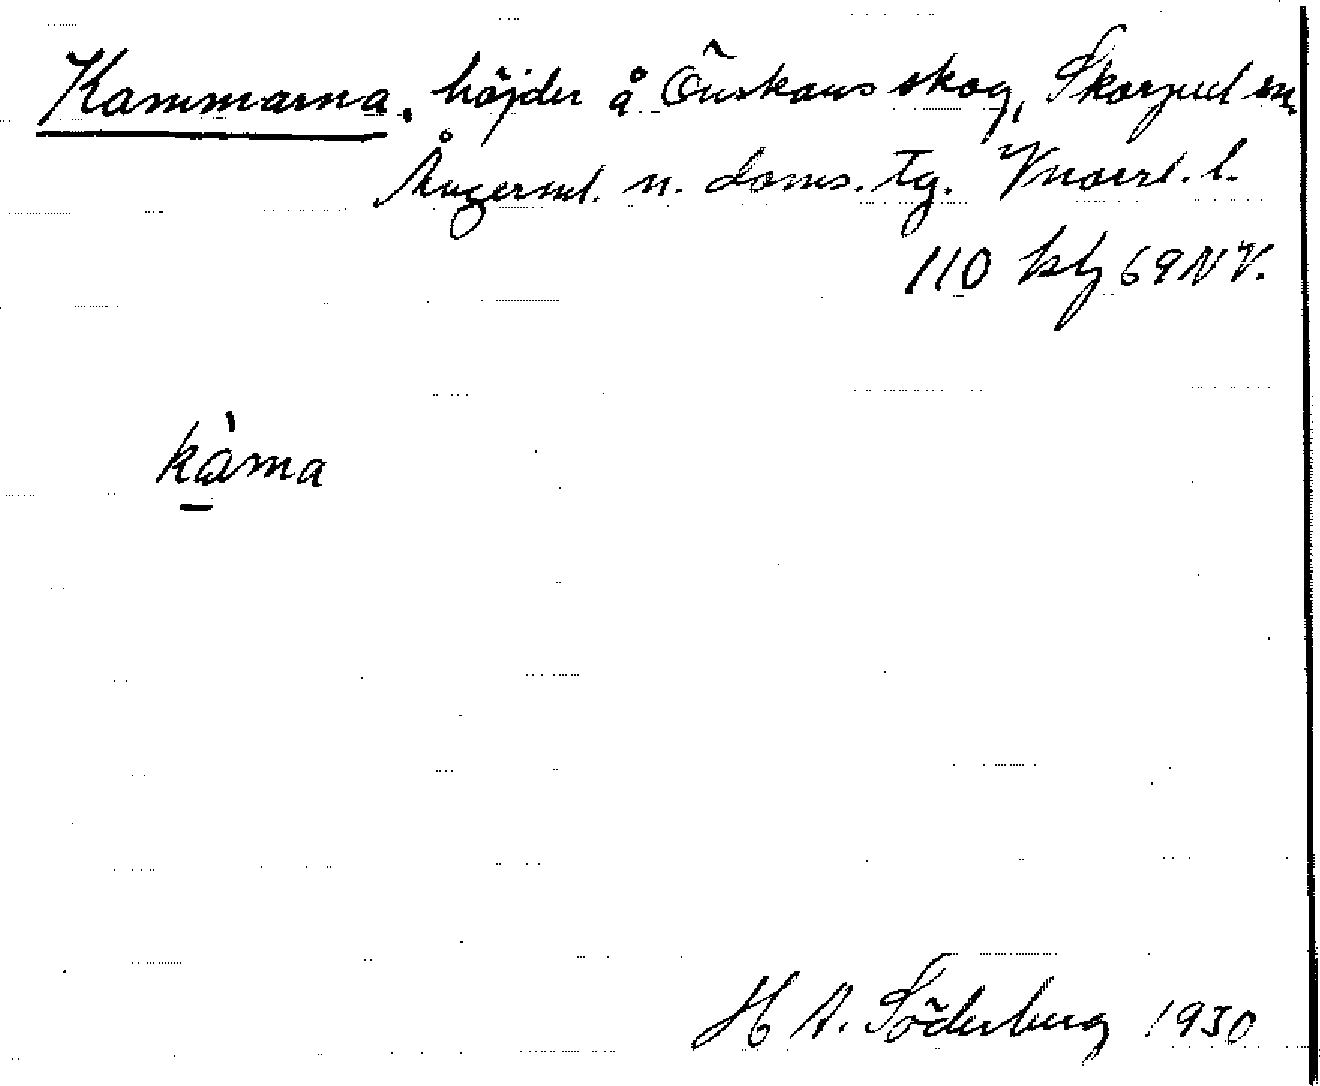 Kammarna, höjder å Önskans skog, Skorped sn.
Ångerml. n. doms. tg. Vnorrl. l.
110 kbl 69 NV.
kàma
H A. Söderberg 1930